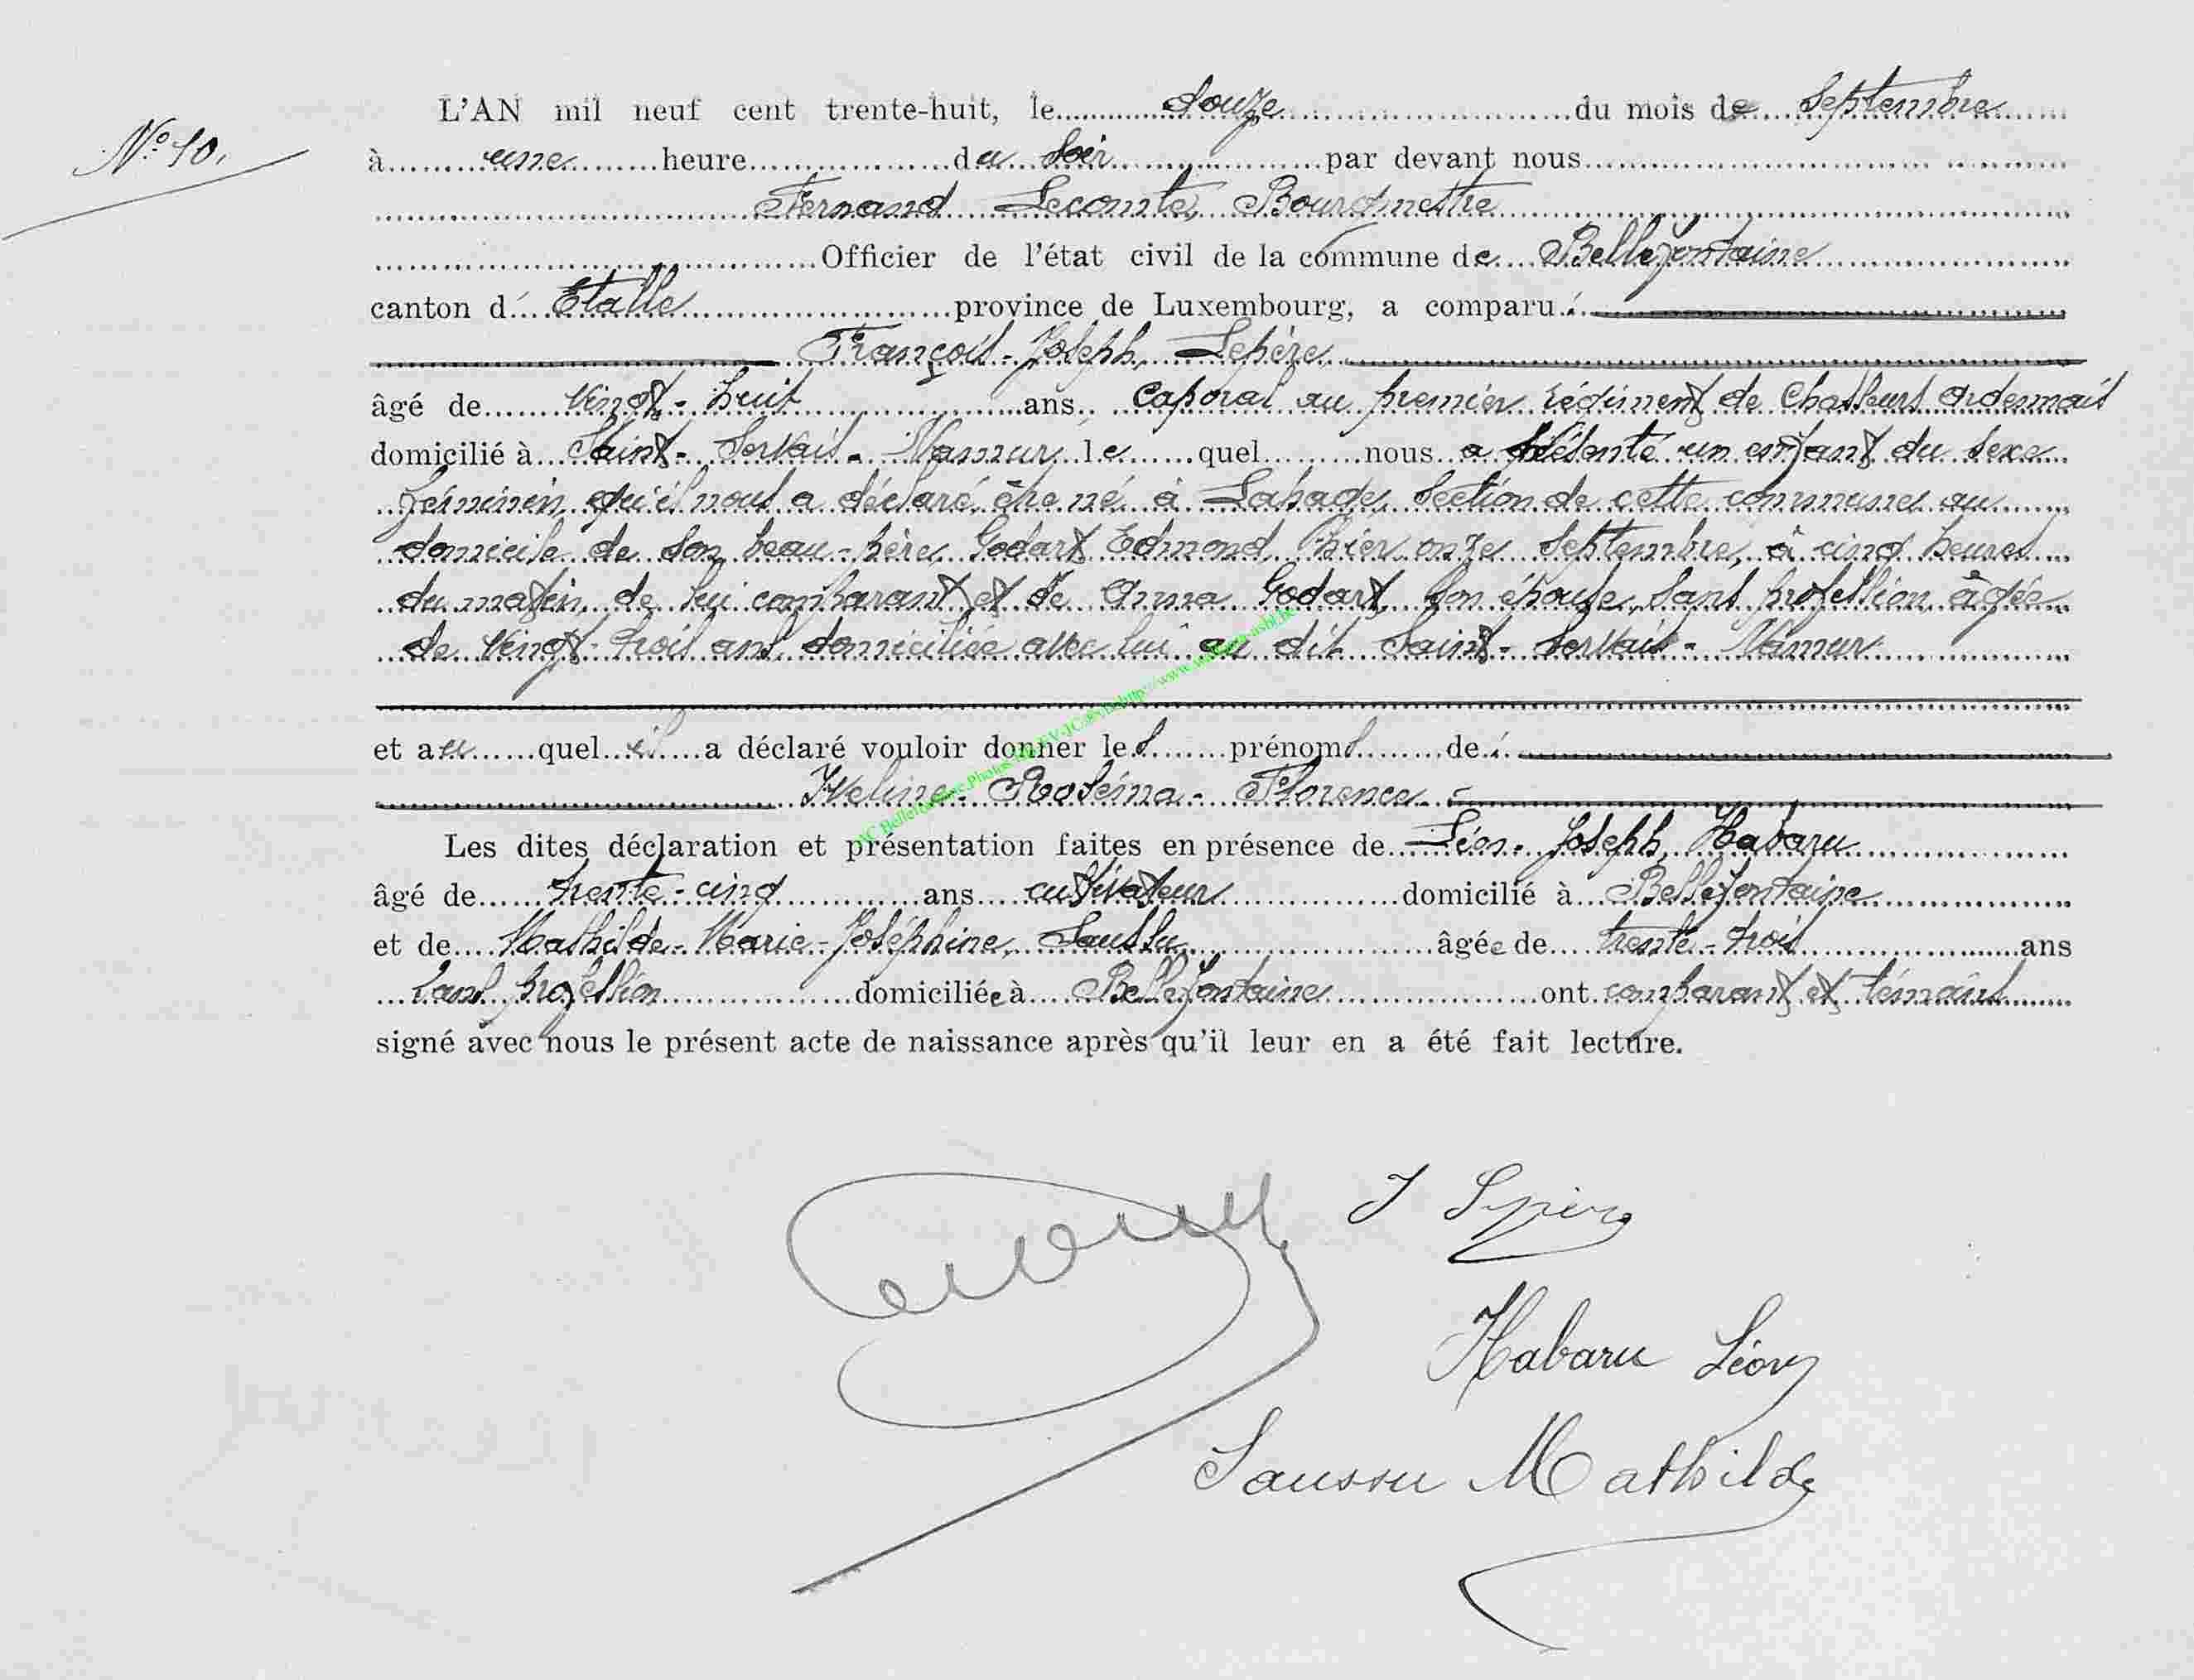 L'AN mil neuf cent trente-huit, le douze du mois de Septembre
N° 10.
à une heure du soir par devant nous
Fernand Lecomte, Bourgmestre
Officier de l'état civil de la commune de Bellefontaine
canton d' Etalle province de Luxembourg, a comparu :
François-Joseph, Lepère
âgé de vingt-huit ans, caporal au premier régiment de Chasseurs ardennais
domicilié à Saint-Servais-Namur le quel nous a présenté un enfant du sexe
féminin, qu'il nous a déclaré être né à Lahage, section de cette commune, au
domicile de son beau-père, Godart Edmond, hier onze septembre, à cinq heures
du matin, de lui comparant et de Anna Godart, son épouse, sans profession, âgée
de vingt-trois ans, domiciliée avec lui au dit Saint-Servais-Namur
et au quel il a déclaré vouloir donner les prénoms de :
Yveline-Roséma-Florence.
Les dites déclaration et présentation faites en présence de Léon-Joseph, Habaru
âgé de trente-cinq ans cultivateur domicilié à Bellefontaine
et de Mathilde-Marie-Joséphine, Saussu âgée de trente-trois ans
sans profession domiciliée à Bellefontaine ont comparant et témoins
signé avec nous le présent acte de naissance après qu'il leur en a été fait lecture.
Habaru Léon
Saussu Mathilde